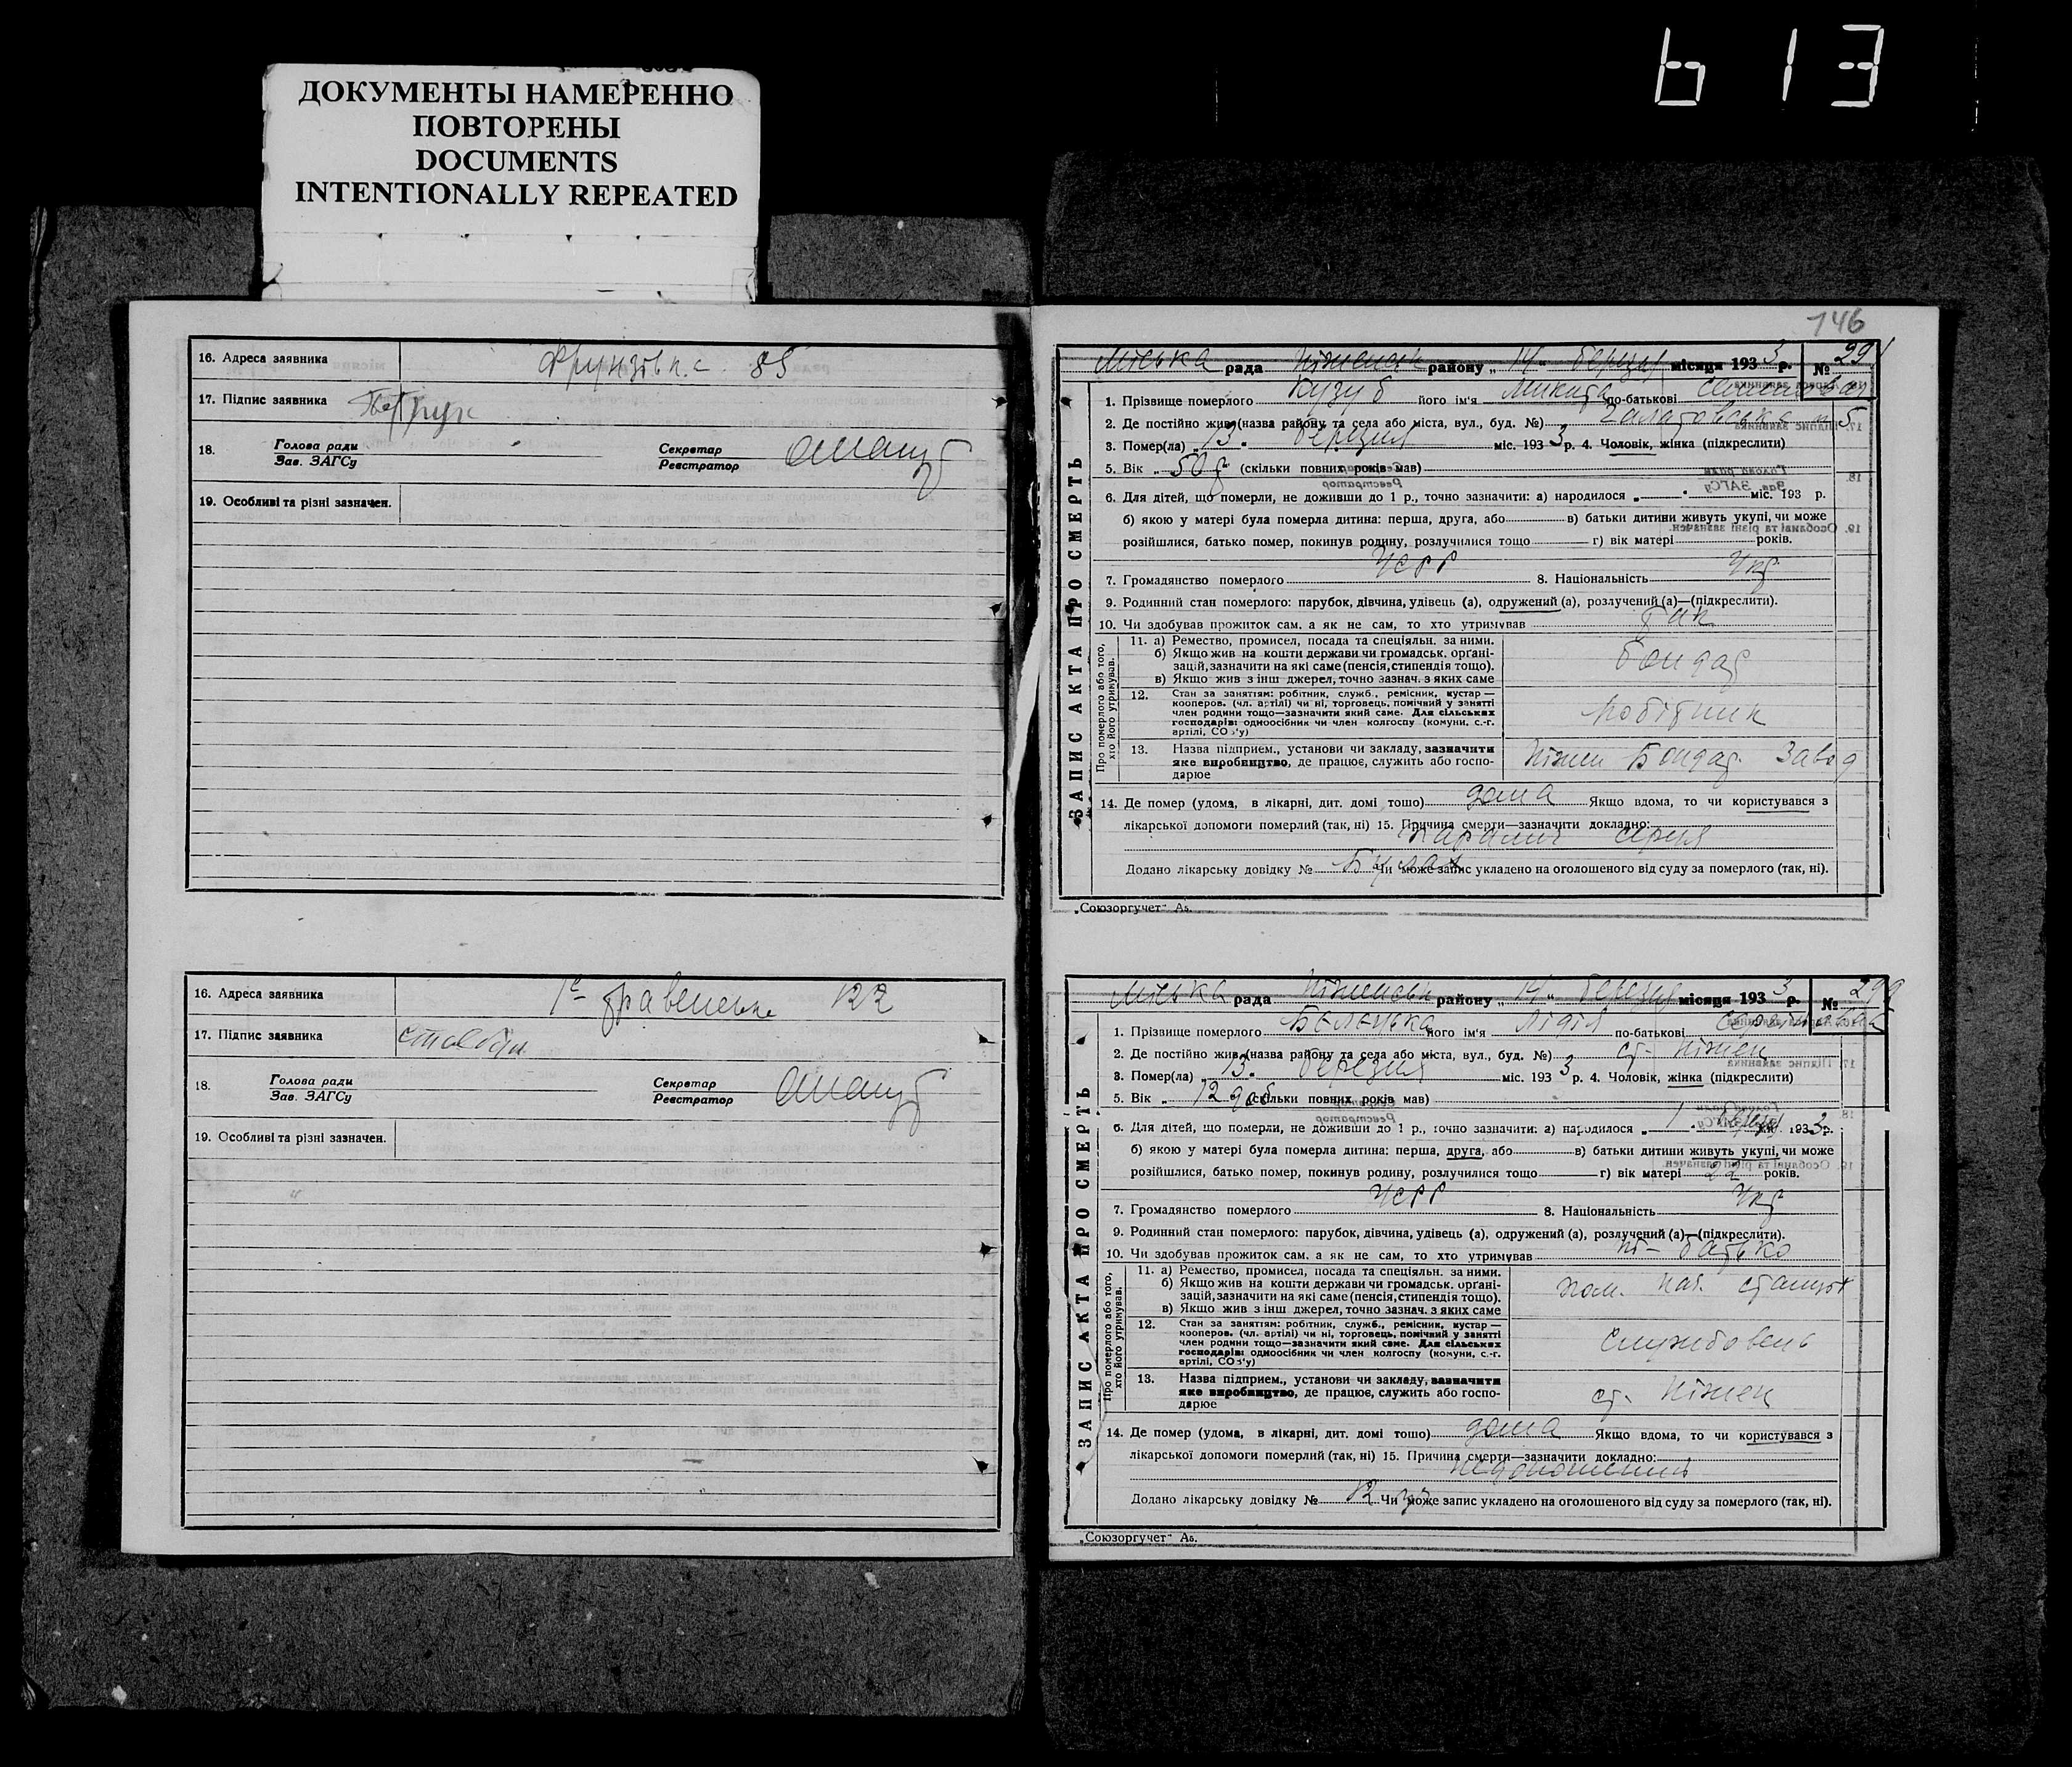 613
ДОКУМЕНТЫ НАМЕРЕННО
ПОВТОРЕНЫ
DOCUMENTS
INTENTIONALLY REPEATED
16. Адреса заявника Фрунзівка 85
17. Підпис заявника Петрук
18. Голова ради Секретар
Зав. ЗАГСу Реєстратор
19. Особливі та різні зазначен.
16. Адреса заявника 122
17. Підпис заявника
18. Голова ради Секретар
Зав. ЗАГСу Реєстратор
19. Особливі та різні зазначен.
146
ЗАПИС АКТА ПРО СМЕРТЬ
Міська рада Ніженськ району „14" березня місяця 1933 р. № 291
1. Прізвище померлого Кузуб його ім'я Микита по-батькові
2. Де постійно жив (назва району та села або міста, вул., буд. №) 5
3. Помер(ла) „13" березня міс. 1933 р. 4. Чоловік, жінка (підкреслити)
5. Вік „50 р" (скільки повних років мав)
6. Для дітей, що померли, не доживши до 1 р., точно зазначити: а) народилося „ " міс. 193 р.
б) якою у матері була померла дитина: перша, друга, або в) батьки дитини живуть укупі, чи може
розійшлися, батько помер, покинув родину, розлучилися тощо г) вік матері років.
7. Громадянство померлого УСРР 8. Національність Укр
9. Родинний стан померлого: парубок, дівчина, удівець (а), одружений (а), розлучений (а)—(підкреслити).
10. Чи здобував прожиток сам, а як не сам, то хто утримував так
Про померлого або того, хто його утримував.
11. а) Ремество, промисел, посада та спеціяльн. за ними.
б) Якщо жив на кошти держави чи громадськ. органі-
зацій, зазначити на які саме (пенсія, стипендія тощо).
в) Якщо жив з інш джерел, точно зазнач. з яких саме
бондар
12. Стан за заняттям: робітник, служб., ремісник, кустар—
кооперов. (чл. артілі) чи ні, торговець, помічний у занятті
член родини тощо—зазначити який саме. Для сільських
господарів: одноосібник чи член колгоспу (комуни, с.-г.
артілі, СОЗ'у)
робітник
13. Назва підприєм., установи чи закладу, зазначити
яке виробництво, де працює, служить або госпо-
дарює
Ніжен Бондар. Завод
14. Де помер (удома, в лікарні, дит. домі тощо) дома Якщо вдома, то чи користувався з
лікарської допомоги померлий (так, ні) 15. Причина смерти—зазначити докладно:
Параліч серця
Додано лікарську довідку № Чи може запис укладено на оголошеного від суду за померлого (так, ні).
„Союзоргучет" А₅.
ЗАПИС АКТА ПРО СМЕРТЬ
Міська рада Ніженськ району „14" березня місяця 1933 р. № 292
1. Прізвище померлого його ім'я Лідія по-батькові
2. Де постійно жив (назва району та села або міста, вул., буд. №) ст. Ніжен
3. Помер(ла) „13" березня міс. 1933 р. 4. Чоловік, жінка (підкреслити)
5. Вік „12 діб (скільки повних років мав)
6. Для дітей, що померли, не доживши до 1 р., точно зазначити: а) народилося „1" міс. 1933 р.
б) якою у матері була померла дитина: перша, друга, або в) батьки дитини живуть укупі, чи може
розійшлися, батько помер, покинув родину, розлучилися тощо г) вік матері 22 років.
7. Громадянство померлого УСРР 8. Національність Укр
9. Родинний стан померлого: парубок, дівчина, удівець (а), одружений (а), розлучений (а)—(підкреслити).
10. Чи здобував прожиток сам, а як не сам, то хто утримував ні- батько
Про померлого або того, хто його утримував.
11. а) Ремество, промисел, посада та спеціяльн. за ними.
б) Якщо жив на кошти держави чи громадськ. органі-
зацій, зазначити на які саме (пенсія, стипендія тощо).
в) Якщо жив з інш джерел, точно зазнач. з яких саме
пом. нач. станції
12. Стан за заняттям: робітник, служб., ремісник, кустар—
кооперов. (чл. артілі) чи ні, торговець, помічний у занятті
член родини тощо—зазначити який саме. Для сільських
господарів: одноосібник чи член колгоспу (комуни, с.-г.
артілі, СОЗ'у)
службовець
13. Назва підприєм., установи чи закладу, зазначити
яке виробництво, де працює, служить або госпо-
дарює
ст. Ніжен
14. Де помер (удома, в лікарні, дит. домі тощо) дома Якщо вдома, то чи користувався з
лікарської допомоги померлий (так, ні) 15. Причина смерти—зазначити докладно:
Додано лікарську довідку № 12 Чи може запис укладено на оголошеного від суду за померлого (так, ні).
„Союзоргучет" А₅.